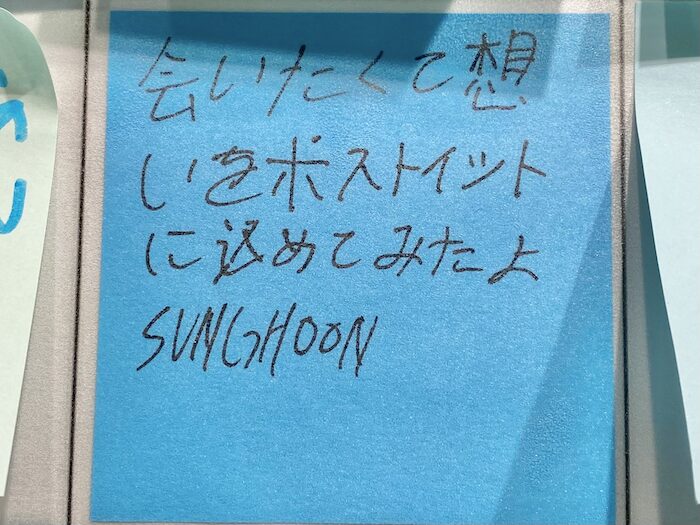 会いたくて想
いをポストイット
に込めてみたよ
SUNGHOON